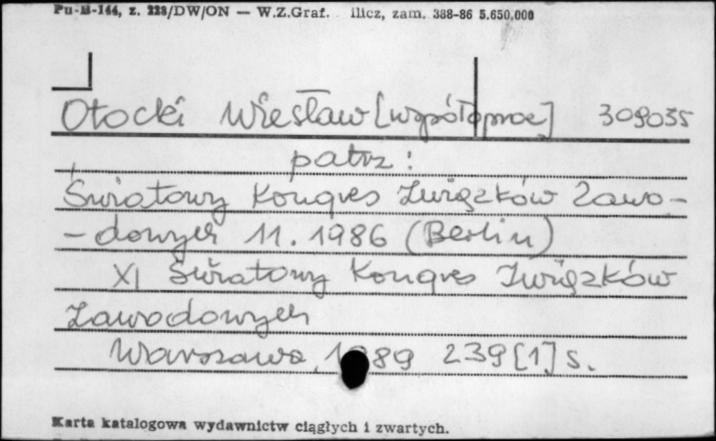 Pu-B-144, z. 223/DW/ON — W.Z.Graf. ilicz, zam. 388-86 5.650.000
Otocki Wiesław [współprac] 309035
patrz:
Światowy Kongres Związków Zawo-
-dowych 11. 1986 (Berlin)
XI Światowy Kongres Związków
Zawodowych
Warszawa, 1989 239[1] s.
Karta katalogowa wydawnictw ciągłych i zwartych.